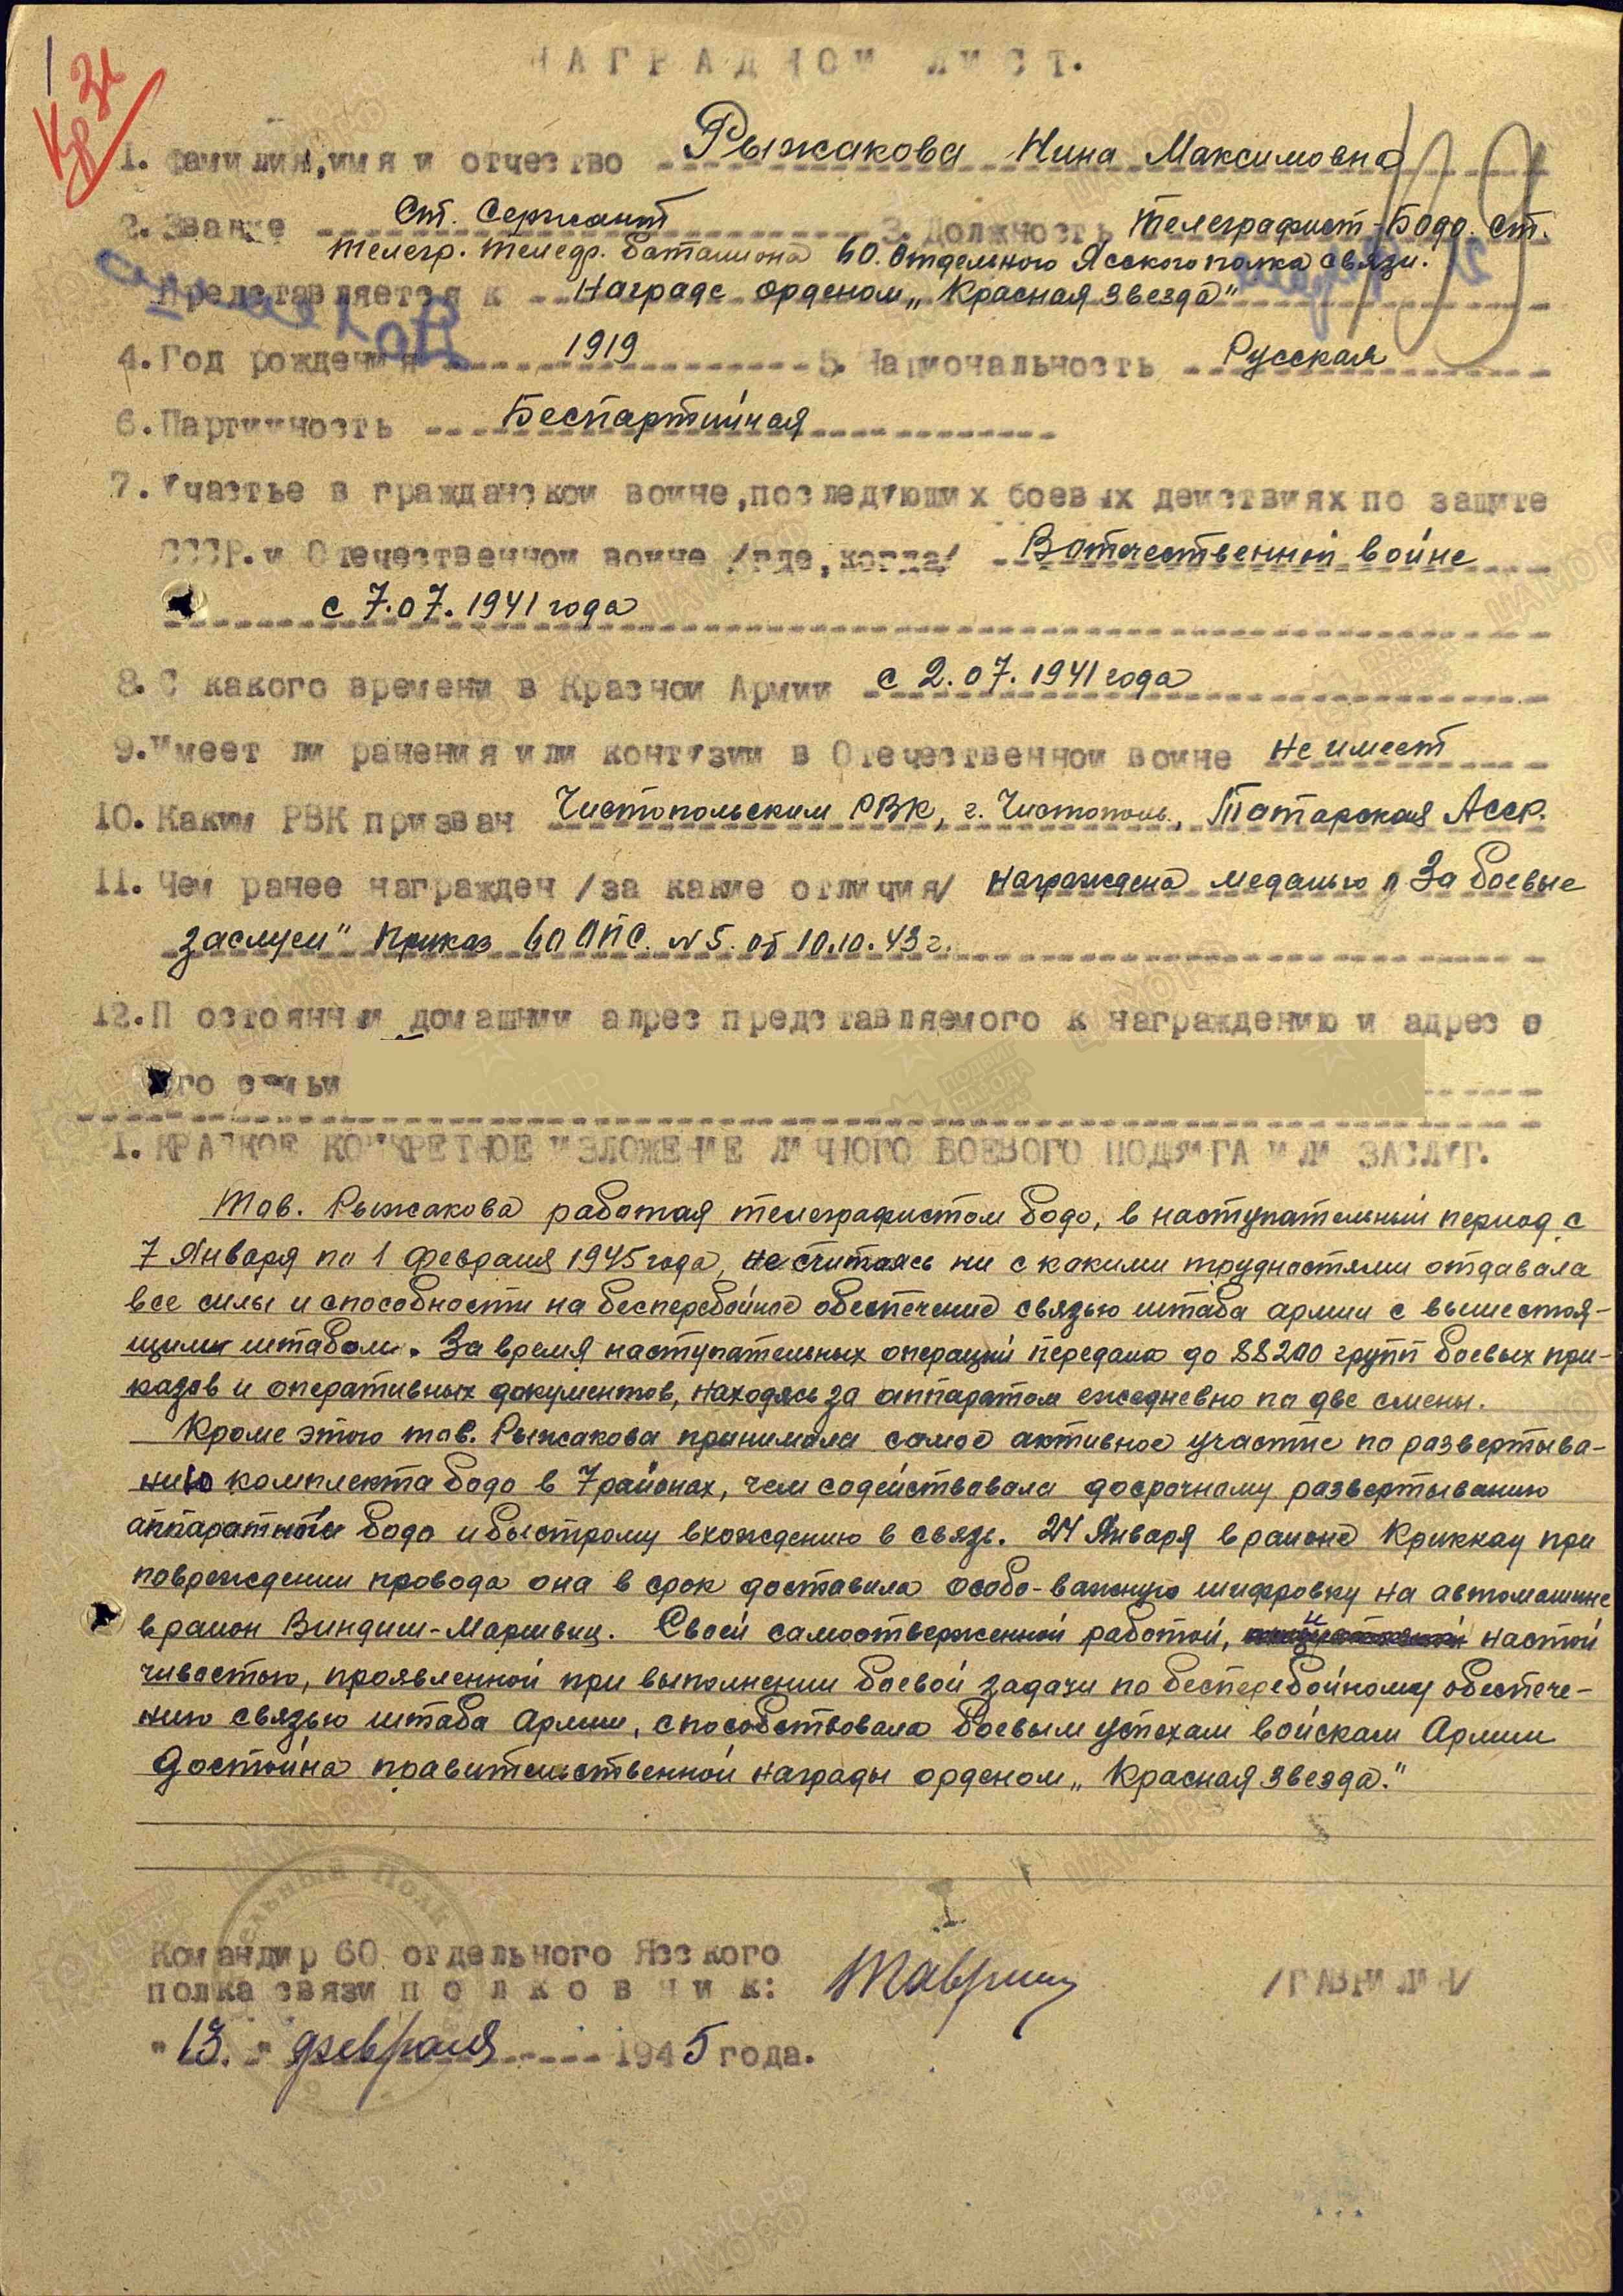 НАГРАДНОЙ ЛИСТ.
1. Фамилия, имя и отчество Рыжакова Нина Максимовна
2. Звание Ст. Сержант 3. Должность Телеграфист-Бодо. Ст.
Телегр. Телефр. Баталиона 60. Отдельного Ясского полка связи.
Представляется к Награде орденом „Красная звезда"
4. Год рождения 1919 5. Национальность Русская
6. Партийность Беспартийная
7. Участье в гражданской войне, последующих боевых действиях по защите
СССР. и Отечественной войне /где, когда/ В отечественной войне
с 7.07.1941 года
8. С какого времени в Красной Армии с 2.07.1941 года
9. Имеет ли ранения или контузии в Отечественной войне не имеет
10. Каким РВК призван Чистопольским РВК, г. Чистополь, Татарская Асср.
11. Чем ранее награжден /за какие отличия/ награждена медалью „За боевые
заслуги" Приказ 60 ОПС. №5. от 10.10.43 г.
12. Постоянный домашний адрес представляемого к награждению и адрес
его семьи
1. КРАТКОЕ КОНКРЕТНОЕ ИЗЛОЖЕНИЕ ЛИЧНОГО БОЕВОГО ПОДВИГА ИЛИ ЗАСЛУГ.
Тов. Рыжакова работая телеграфистом бодо, в наступательный период с
7 Января по 1 февраля 1945 года, не считаясь ни с какими трудностями отдавала
все силы и способности на бесперебойное обеспечение связью штаба армии с вышестоя-
щими штабом. За время наступательных операций передала до 88200 групп боевых при-
казов и оперативных документов, находясь за аппаратом ежедневно по две смены.
Кроме этого тов. Рыжакова принимала самое активное участие по развертыва-
нию комплекта бодо в 7 районах, чем содействовала досрочному развертыванию
аппаратной бодо и быстрому вхождению в связь. 24 Января в районе Криккау при
повреждении провода она в срок доставила особо-важную шифровку на автомашине
в район Виндиш-Маршвиц. Своей самоотверженной работой, и настой
чивостью, проявленной при выполнении боевой задачи по бесперебойному обеспече-
нию связью штаба Армии, способствовала боевым успехам войскам Армии
Достойна правительственной награды орденом „Красная звезда."
Командир 60 отдельного Ясского
полка связи полковник: /ГАВРИЛИН/
"13." февраля 1945 года.